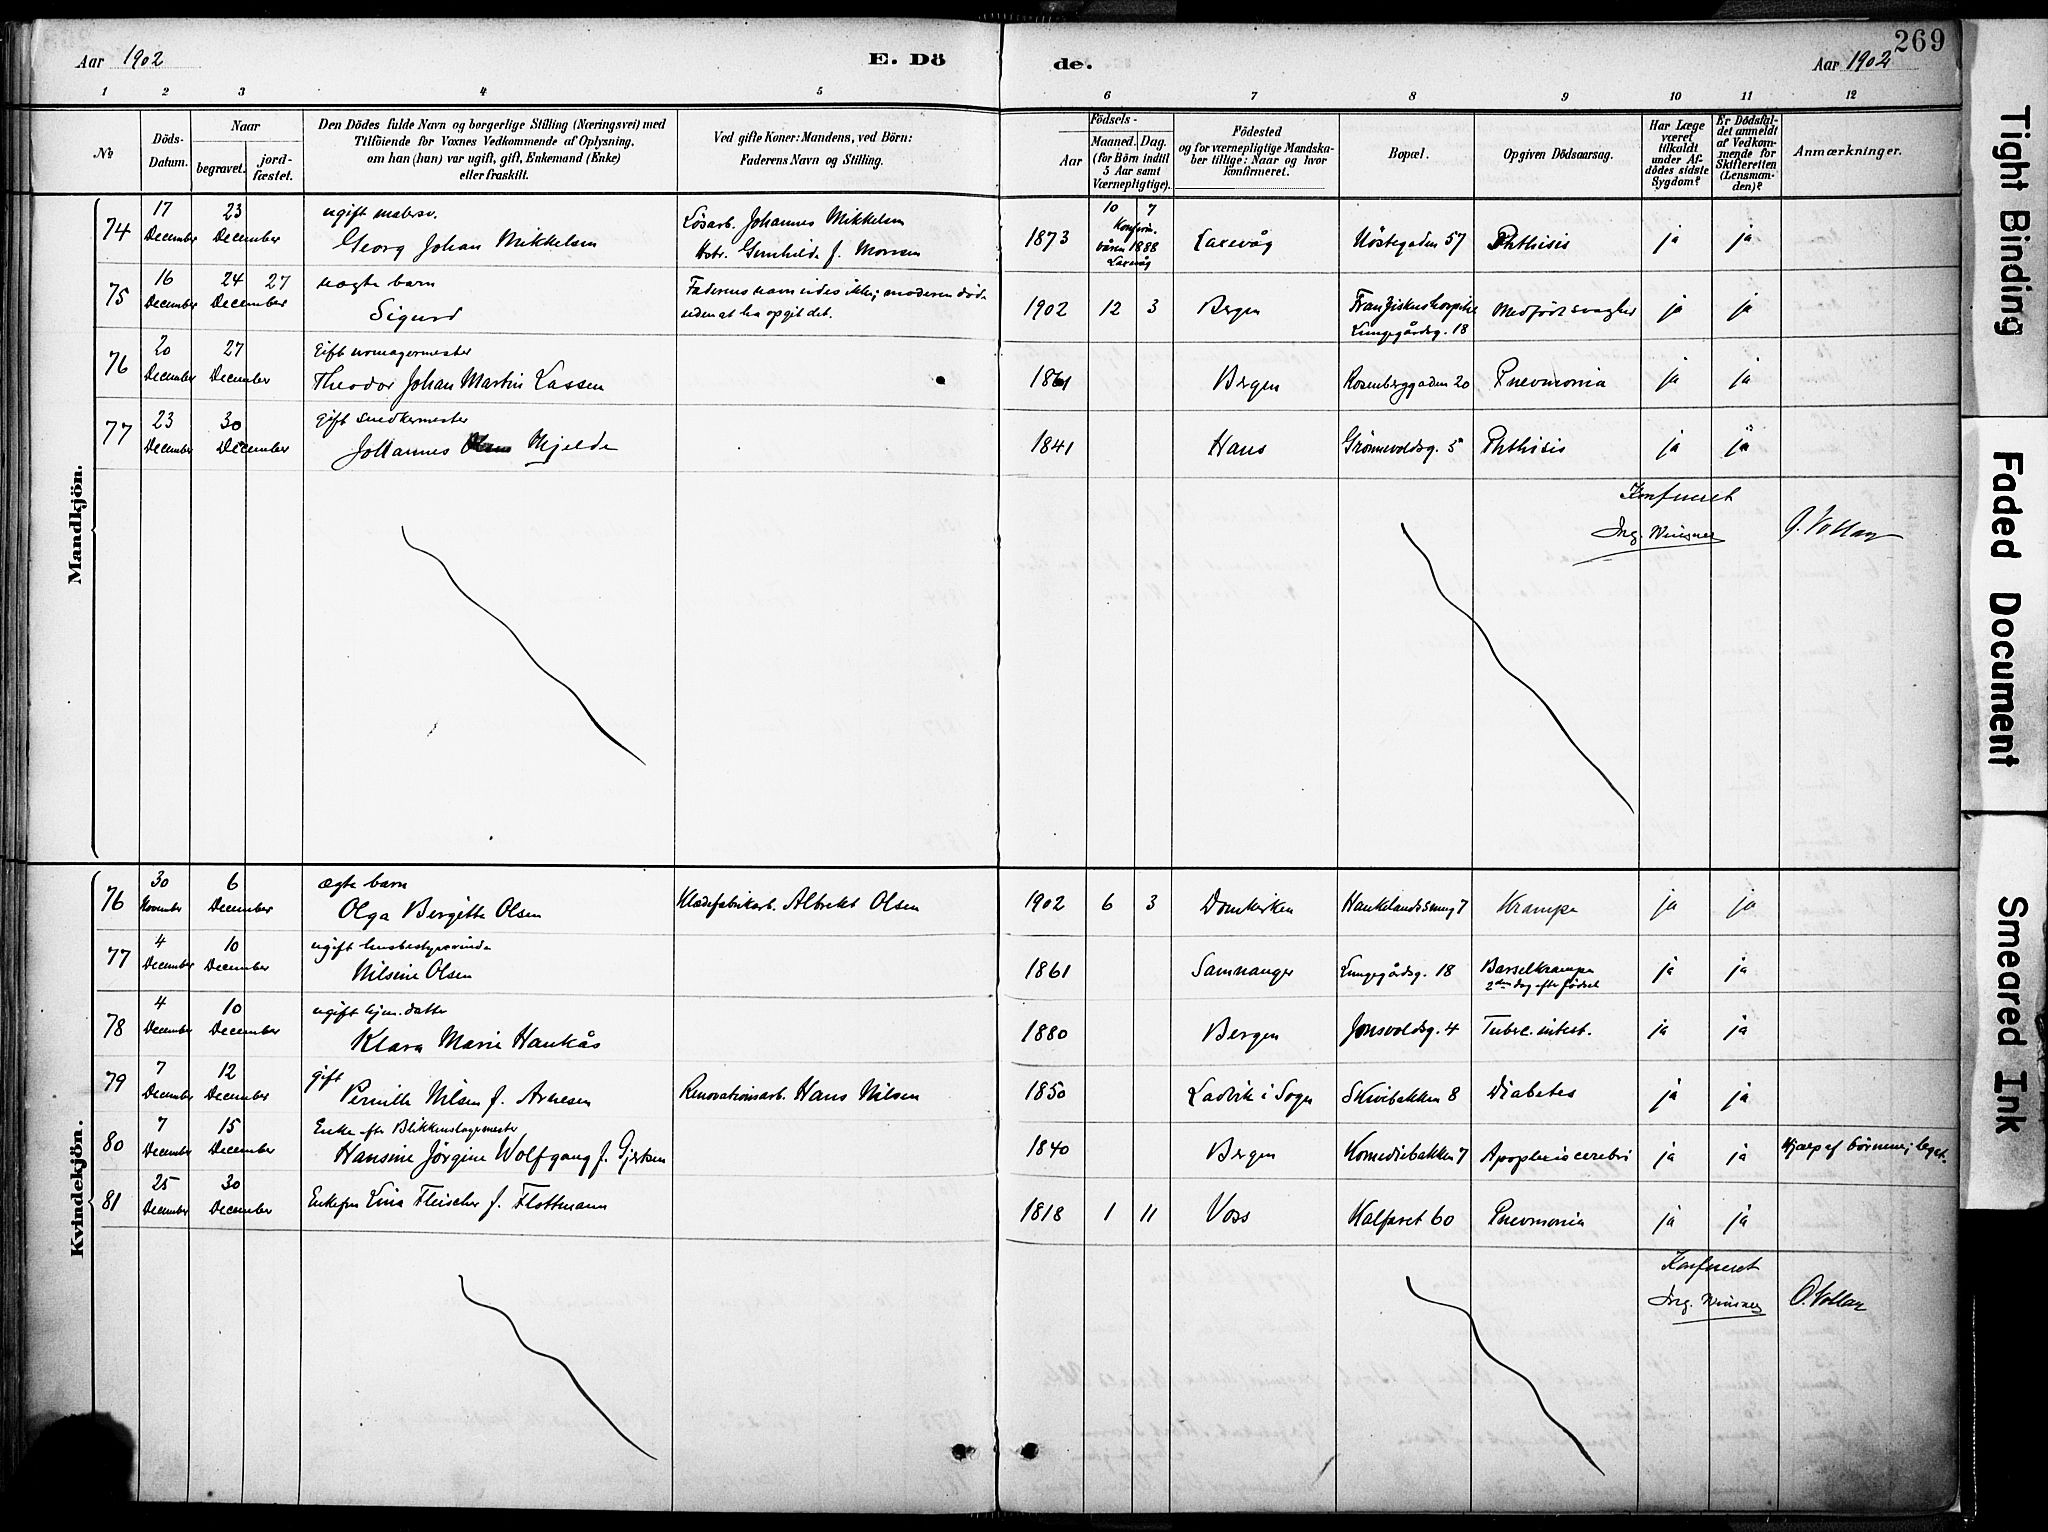 269
Aar 1902 E. Dö
de. Aar 1902
1 2 3 4 5
6 7 8 9 10 11 12
No
Döds-
Datum.
Naar
begravet.
jord-
fæstet.
Den Dödes fulde Navn og borgerlige Stilling (Næringsvei) med
Tilföiende for Voxnes Vedkommende af Oplysning,
om han (hun) var ugift, gift, Enkemand (Enke)
eller fraskilt.
Ved gifte Koner: Mandens, ved Börn:
Faderens Navn og Stilling.
Födsels-
Aar
Maaned.
Dag.
(for Börn indtil
5 Aar samt
Værnepligtige).
Födested
og for værnepligtige Mandska-
ber tillige: Naar og hvor
konfirmeret.
Bopæl.
Opgiven Dödsaarsag.
Har Læge
været
tilkaldt
under Af-
dödes sidste
Sygdom?
Er Dödsfal-
det anmeldt
af Vedkom-
mende for
Skifteretten
(Lensman-
den)?
Anmærkninger.
Mandkjön.
74 17 December 23 December ugift matrosv. Georg Johan Mikkelsen
Lösarb. Johannes Mikkelsen
Hstr. Gunhilde f. Monsen
1873 10 7 Konfirm. våren 1888 Laxevåg
Laxevåg Nöstegaden 57 Phthisis ja ja
75 16 December 24 December 27 uægte barn
Sigurd
Faderens navn vides ikke; moderen döde
uden at ha opgit det.
1902 12 3 Bergen Franziskushospital
Lungegårdsg. 18
Medfödt svaghed ja ja
76 20 December 27 December Gift
Theodor Johan Martin Lassen
1861 Bergen Rosenberggaden 20 Pnevmonia ja ja
77 23 December 30 December gift snedkermester
Johannes Mjelde
1841 Haus Grönnevoldsg. 5 Phthisis ja ja
Konfereret
Ing. Wiesner O. Vollan
Kvindekjön.
76 30 November 6 December ægte barn
Olga Bergitte Olsen
Klædefabrikarb. Albrekt Olsen
1902 6 3 Domkirken Haukelandssmug 7 Krampe ja ja
77 4 December 10 December ugift husbestyrerinde
Nilsine Olsen
1861 Samnanger Lungegårdsg. 18 Barselkrampe
2den dag efter födsel
ja ja
78 4 December 10 December ugift hjem. datter
Klara Marie Haukås
1880 Bergen Jonsvoldsg. 4 Tuberc. intest. ja ja
79 7 December 12 December gift
Pernille Nilsen f. Arnesen
Renovationsarb. Hans Nilsen
1850 Ladvik i Sogn Skivebakken 8 Diabetes ja ja
80 7 December 15 December Enke efter Blikkenslagermester
Hansine Jörgine Wolfgang f. Gjertsen
1840 Bergen Komediebakken 7 Apoplexia cerebri ja ja Hjælp af börnene; legat.
81 25 December 30 December Enkefru Lina Fleischer f. Flottmann
1818 1 11 Voss Kalfaret 60 Pnevmonia ja ja
Konfereret
Ing. Wiesner O. Vollan
Tight Binding
Faded Document
Smeared Ink